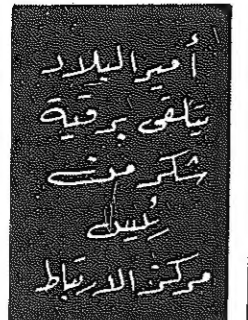 أمير البلاد
يتلقى برقية
شكر من
رئيس
مركز الارتباط